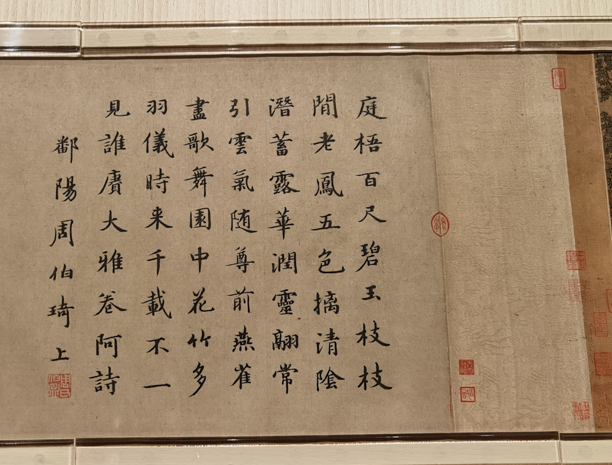 庭梧百尺碧玉枝枝
閒老鳳五色摛清陰
潛蓄露華潤靈翮常
引雲氣随尊前燕雀
盡歌舞園中花竹多
羽儀時来千載不一
見誰賡大雅卷阿詩
鄱陽周伯琦上